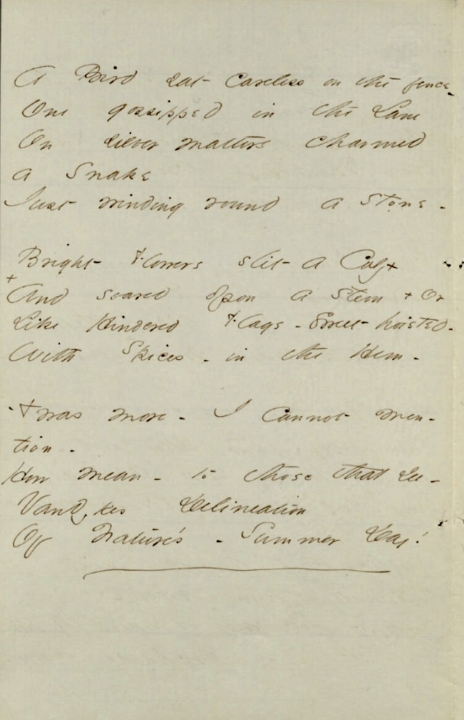 A Bird sat careless on the fence
One gossipped in the Lane
On silver matters charmed
a Snake
Just winding round a Stone -
Bright Flowers slit a Calyx
+ And soared upon a Stem + Or
Like Hindered Flags - Sweet hoisted -
With Spices - in the Hem -
'Twas more - I cannot men-
tion -
How mean - to those that see -
Vandyke's Delineation
Of Nature's - Summer Day!